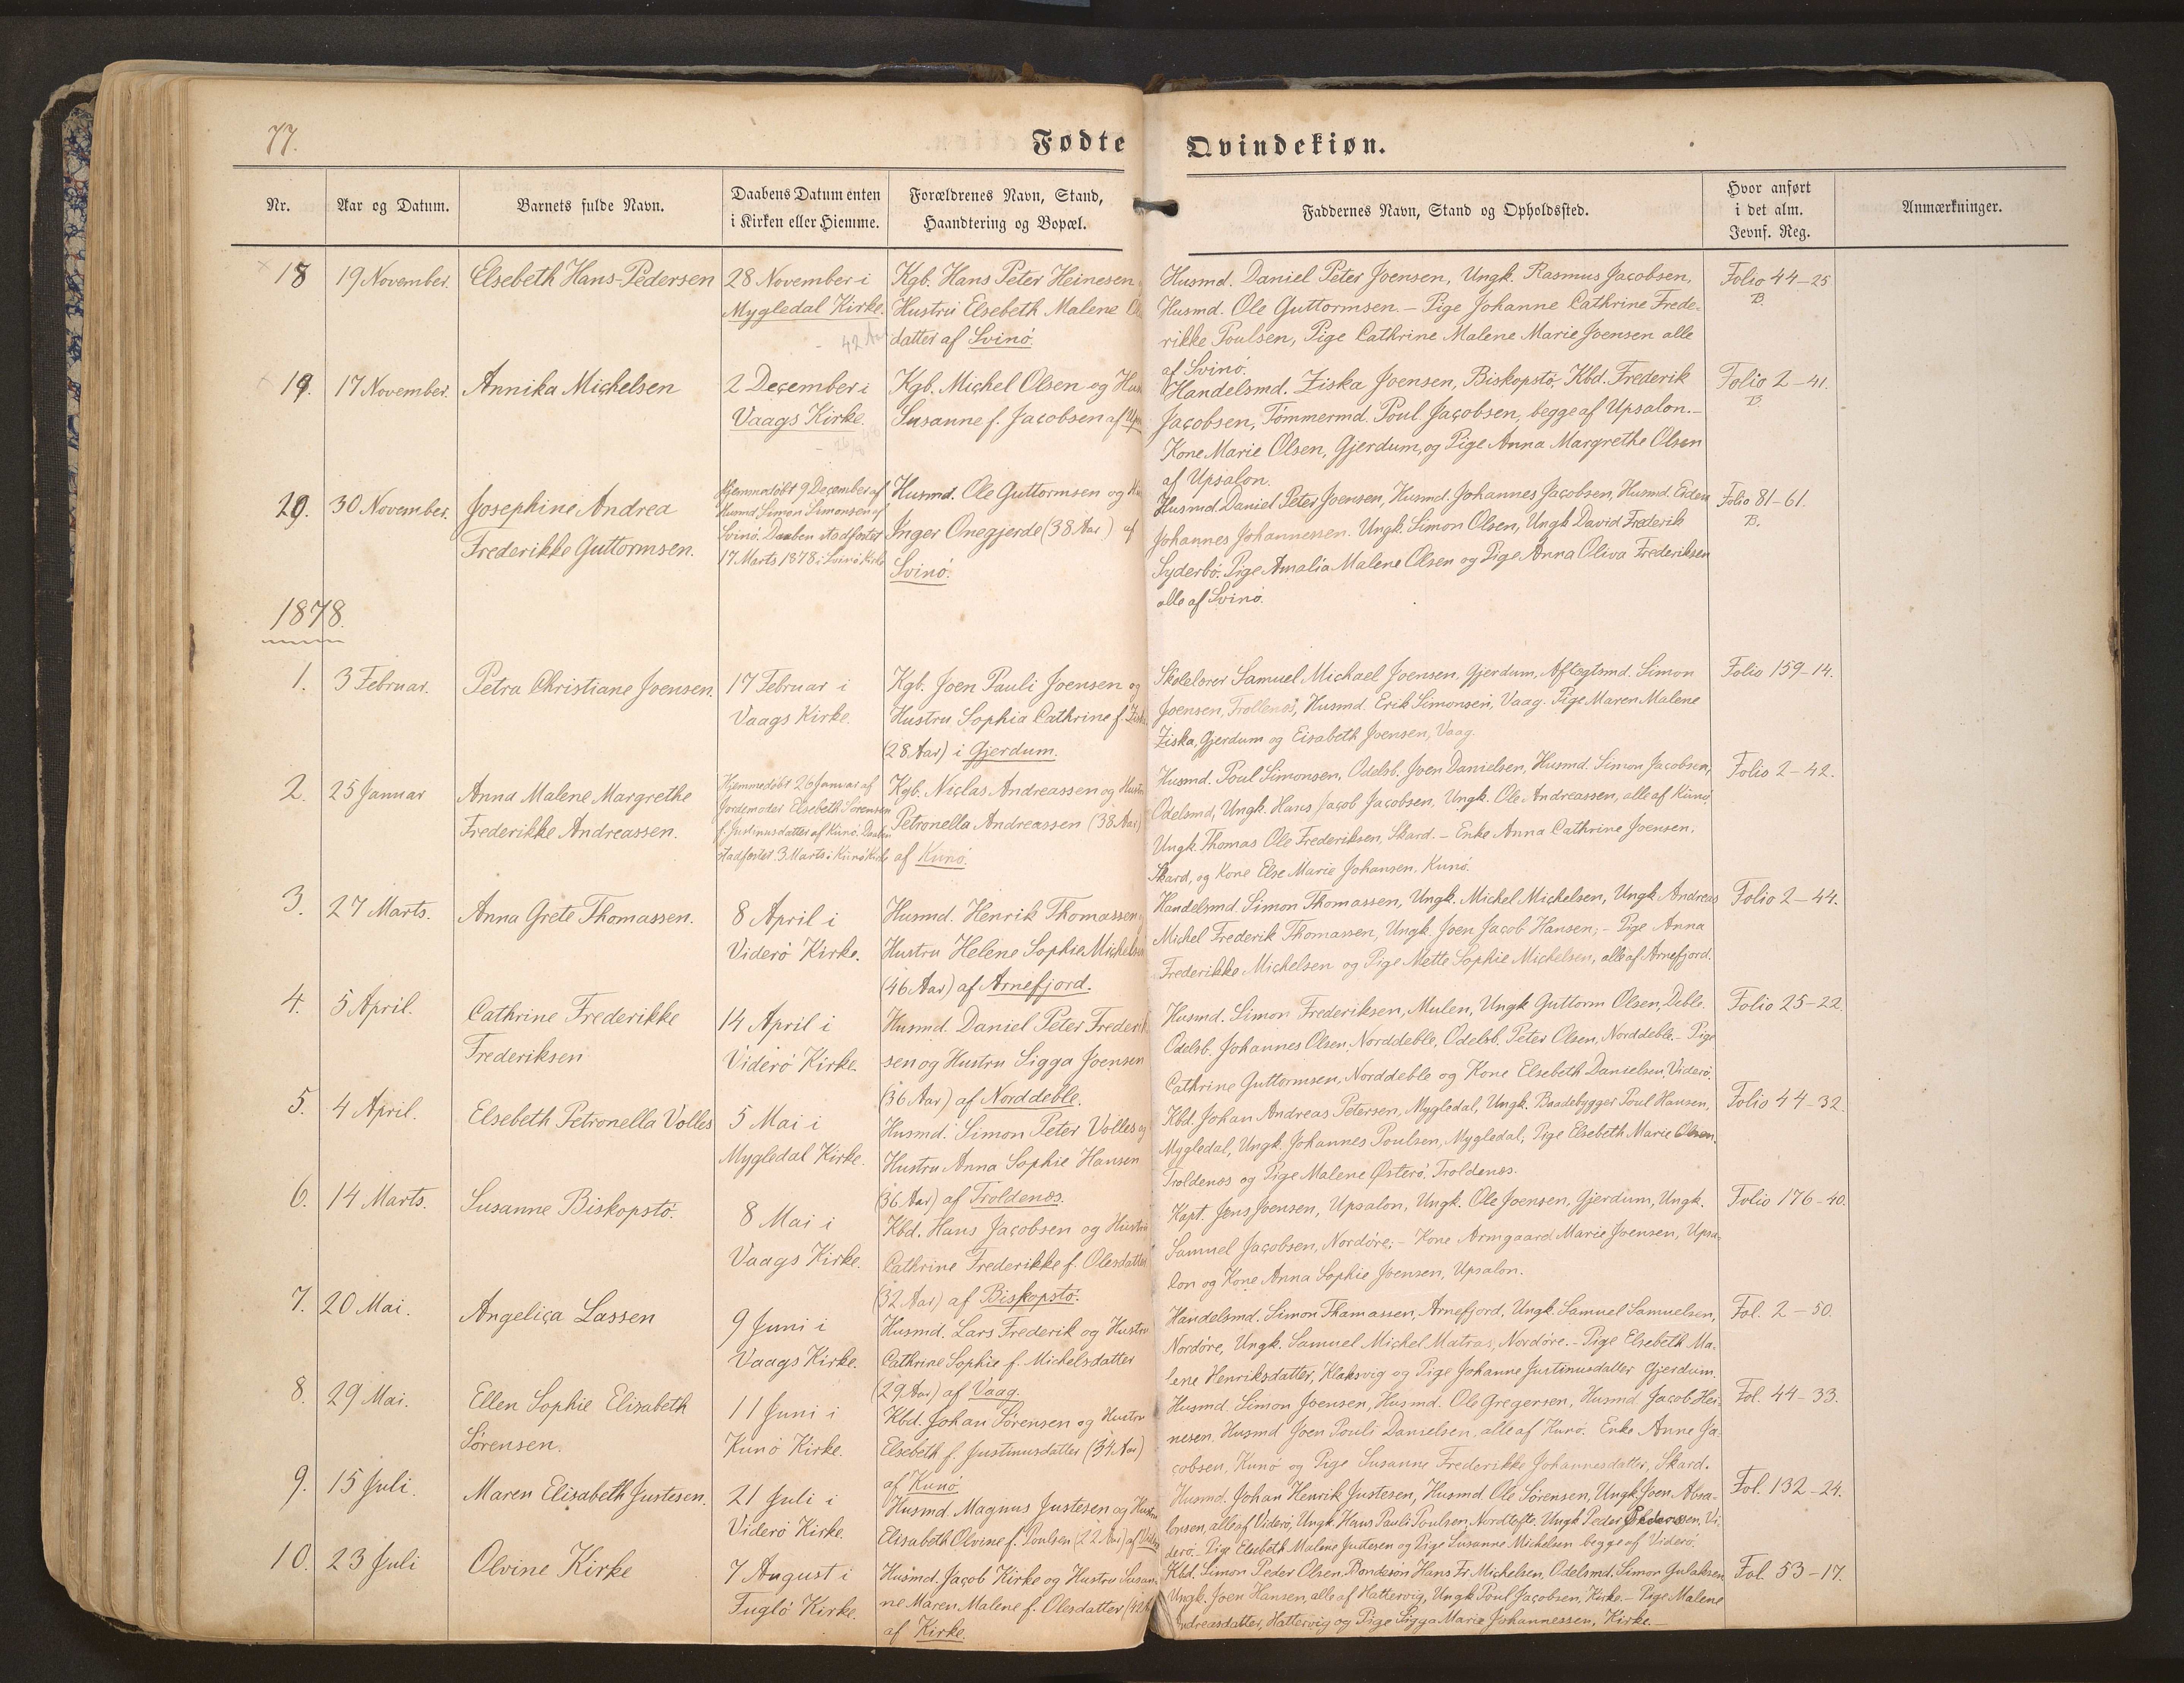 77.
Fødte Qvindekiøn.
Nr.
Aar og Datum.
Barnets fulde Navn.
Daabens Datum enten
i Kirken eller Hiemme.
Forældrenes Navn, Stand,
Haandtering og Bopæl.
Faddernes Navn, Stand og Opholdssted.
Hvor anført
i det alm.
Jevnf. Reg.
Anmærkninger.
18
19 November.
Elsebeth Hans-Pedersen
28 November i
Mygledal Kirke.
42 Aar
Kgb. Hans Peter Heinesen
Hustru Elsebeth Malene
datter af Svinø.
Husmd. Daniel Peter Joensen, Ungk. Rasmus Jacobsen,
Husmd. Ole Guttormsen. – Pige Johanne Cathrine Frede-
rikke Poulsen, Pige Cathrine Malene Marie Joensen alle
af Svinø.
Folio 44–25
B.
19.
17 November.
Annika Michelsen
2 December i
Vaags Kirke.
Kgb. Michel Olsen og
Susanne f. Jacobsen af
Handelsmd. Ziska Joensen, Biskopstø, Kbd. Frederik
Jacobsen, Tømmermd. Poul Jacobsen, begge af Upsalon.–
Kone Marie Olsen, Gjerdum, og Pige Anna Margrethe Olsen
af Upsalon.
Folio 2–41.
B.
20.
30 November.
Josephine Andrea
Frederikke Guttormsen.
Hjemmedøbt 9 December af
Husmd. Simon Simonsen af
Svinø. Daaben stadfæstet
17 Marts 1878 i Svinø Kirke
Husmd. Ole Guttormsen og
Inger Omegjerde (38 Aar) af
Svinø.
Husmd. Daniel Peter Joensen, Husmd. Johannes Jacobsen, Husmd.
Johannes Johannessen. Ungk. Simon Olsen, Ungk. David Frederik
Syderbø. Pige Amalia Malene Olsen og Pige Anna Oliva Frederiksen
alle af Svinø.
Folio 81–61.
B.
1878.
1.
3 Februar.
Petra Christiane Joensen.
17 Februar i
Vaags Kirke.
Kgb. Joen Pauli Joensen og
Hustru Sophia Cathrine f.
(28 Aar) i Gjerdum.
Skolelærer Samuel Michael Joensen, Gjerdum, Aftægtsmd. Simon
Joensen, Trollenæs, Husmd. Erik Simonsen, Vaag. Pige Maren Malene
Ziska, Gjerdum og Eisabeth Joensen, Vaag.
Folio 159–14.
2.
25 Januar
Anna Malene Margrethe
Frederikke Andreassen.
Hjemmedøbt 26 Januar af
Jordemoder Elsebeth Sørensen
f. Justinusdatter af Kunø. Daaben
stadfæstet 3 Marts i Kunø Kirke
Kgb. Niclas Andreassen og Hustru
Petronella Andreassen (38 Aar)
af Kunø.
Husmd. Poul Simonsen, Odelsb. Joen Danielsen, Husmd. Simon Jacobsen,
Odelsmd, Ungk. Hans Jacob Jacobsen, Ungk. Ole Andreassen, alle af Kunø,
Ungk. Thomas Ole Frederiksen, Skard. – Enke Anna Cathrine Joensen,
Skard, og Kone Else Marie Johansen, Kunø.
Folio 2–42.
3.
27 Marts.
Anna Grete Thomassen.
8 April i
Viderø Kirke.
Husmd. Henrik Thomassen
Hustru Helene Sophie Michelsen
(46 Aar) af Arnefjord.
Handelsmd. Simon Thomassen, Ungk. Michel Michelsen, Ungk. Andreas
Michel Frederik Thomassen, Ungk. Joen Jacob Hansen; – Pige Anna
Frederikke Michelsen og Pige Mette Sophie Michelsen, alle af Arnefjord.
Folio 2–44.
4.
5 April.
Cathrine Frederikke
Frederiksen
14 April i
Viderø Kirke.
Husmd. Daniel Peter Frederik
sen og Hustru Sigga Joensen
(36 Aar) af Norddeble.
Husmd. Simon Frederiksen, Mulen, Ungk Guttorm Olsen, Deble.
Odelsb. Johannes Olsen, Norddeble, Odelsb. Peter Olsen, Norddeble. – Pige
Cathrine Guttormsen, Norddeble og Kone Elsebeth Danielsen, Viderø.
Folio 25–22.
5.
4 April.
Elsebeth Petronella Volles
5 Mai i
Mygledal Kirke.
Husmd. Simon Peter Volles og
Hustru Anna Sophie Hansen
(36 Aar) af Troldenæs.
Kbd. Johan Andreas Petersen, Mygledal, Ungk. Baadebygger Poul Hansen,
Mygledal, Ungk Johannes Poulsen, Mygledal, Pige Elsebeth Marie Olsen.
Troldenæs og Pige Malene Østerø, Troldenæs.
Folio 44–32.
6.
14 Marts.
Susanne Biskopstø.
8 Mai i
Vaags Kirke.
Kbd. Hans Jacobsen og Hustru
Cathrine Frederikke f. Olesdatter
(32 Aar) af Biskopstø.
Kapt. Jens Joensen, Upsalon, Ungk. Ole Joensen, Gjerdum, Ungk.
Samuel Jacobsen, Nordøre; – Kone Armgaard Marie Joensen, Upsa-
lon og Kone Anna Sophie Joensen, Upsalon.
Folio 176–40.
7.
20 Mai.
Angelica Lassen
9 Juni i
Vaags Kirke.
Husmd. Lars Frederik og Hustru
Cathrine Sophie f. Michelsdatter
(29 Aar) af Vaag.
Handelsmd. Simon Thamassen, Arnefjord, Ungk. Samuel Samuelsen,
Nordøre, Ungk. Samuel Michel Matras, Nordøre. – Pige Elsebeth Ma-
lene Henriksdatter, Klaksvig og Pige Johanne Justinusdatter Gjerdum.
Fol. 2–50.
8.
29 Mai.
Ellen Sophie Elisabeth
Sørensen.
11 Juni i
Kunø Kirke.
Kbd. Johan Sørensen og Hustru
Elsebeth f. Justinusdatter (34 Aar)
af Kunø.
Husmd. Simon Joensen, Husmd. Ole Gregersen, Husmd. Jacob Hei-
nesen. Husmd Joen Pouli Danielsen, alle af Kunø. Enke Anne Ja-
cobsen, Kunø og Pige Susanne Frederikke Johannesdatter, Skard.
Fol. 44–33.
9.
15 Juli.
Maren Elisabeth Justesen.
21 Juli i
Viderø Kirke.
Husmd. Magnus Justesen og Hustru
Elisabeth Olvine f. Poulsen (22 Aar) af
Husmd. Johan Henrik Justesen, Husmd. Ole Sørensen, Ungk. Joen Absa-
lonsen, alle af Viderø, Ungk. Hans Pauli Poulsen, Nordtofte. Ungk Peder Pedersen, Vi-
derø. – Pige Elsebeth Malene Justesen og Pige Susanne Michelsen begge af Viderø.
Fol. 132–24.
10.
23 Juli
Olvine Kirke
7 August i
Fuglø Kirke.
Husmd. Jacob Kirke og Hustru Susan-
ne Maren Malene f. Olesdatter (42
af Kirke.
Kbd. Simon Peder Olsen. Bondesøn Hans Fr. Michelsen, Odelsmd. Simon Gulaksen
Ungk. Joen Hansen, alle af Hattervig, Ungk Poul Jacobsen, Kirke. – Pige Malene
Andreasdatter, Hattervig og Pige Sigga Marie Johannessen, Kirke. –
Fol. 53–17.